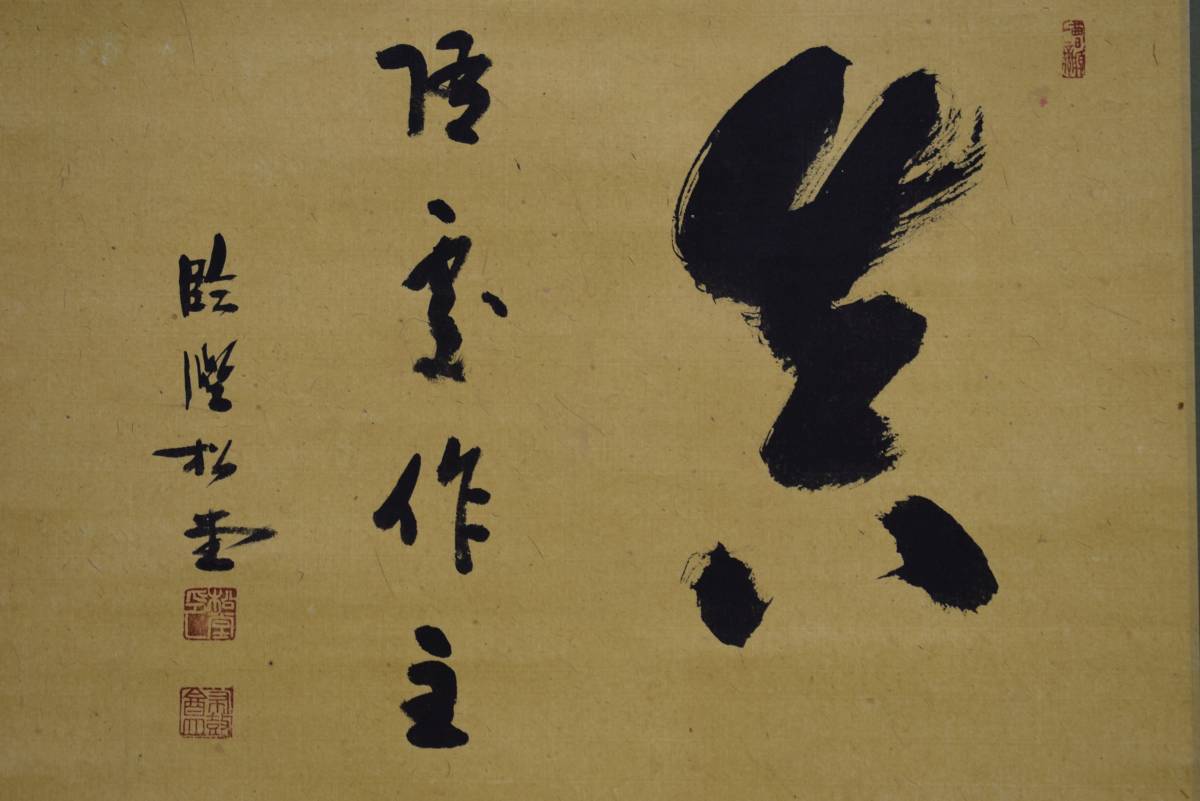 真
随處作主
臨濟松堂